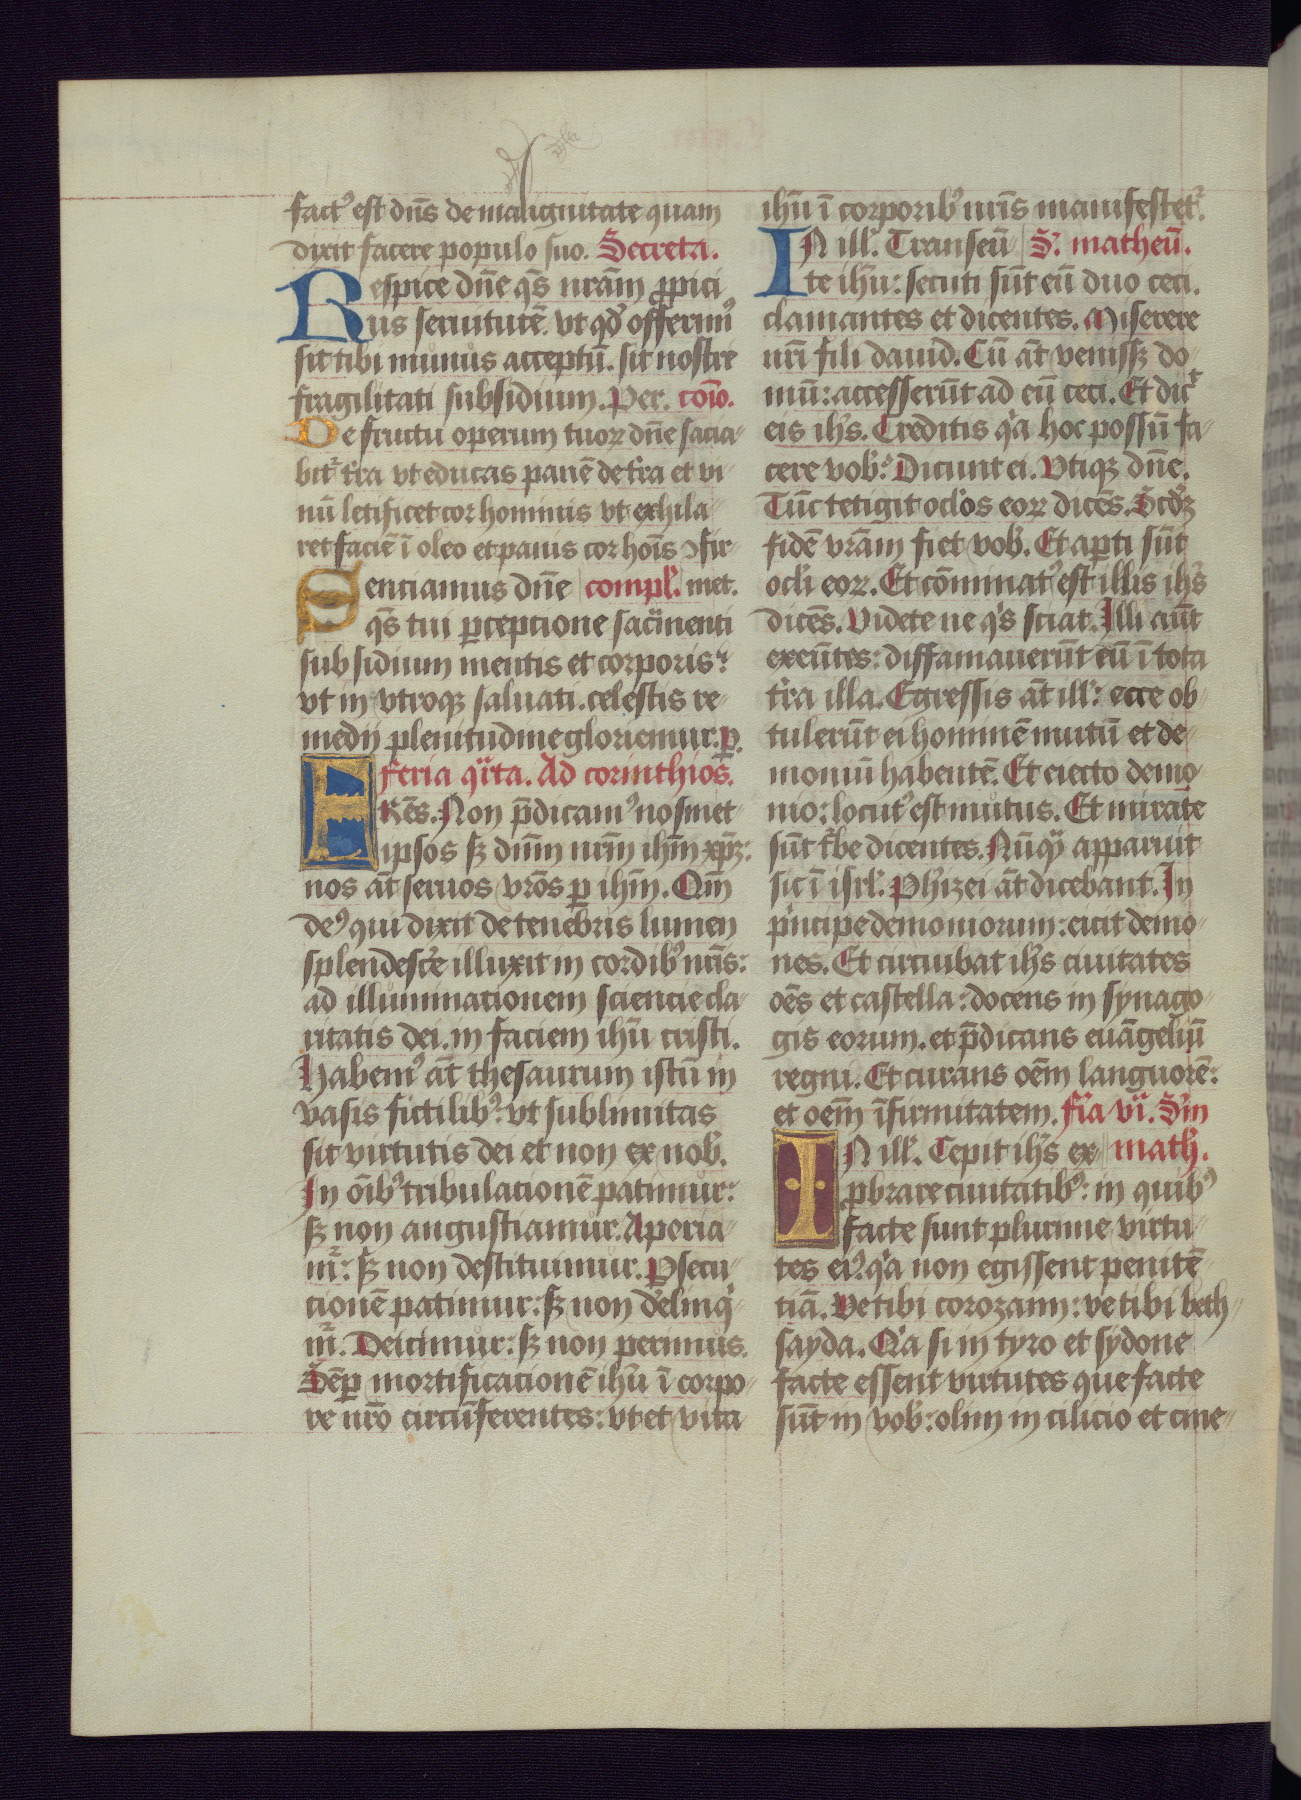 fact᷒ est dn̄s de malignitate quam
dixit facere populo suo. Secreta.
Respice dn̄e qs̄ nrām ꝓpici
us seruitutē. vt qd̛ offerim᷒
sit tibi munus acceptū. sit nostre
fragilitati subsidium. Per. cōio.
De fructu operum tuoꝝ dn̄e sacia-
bit᷑ tr̄a vt educas panē de tr̄a et vi-
nū letificet cor hominis vt exhila-
ret faciē ī oleo et panis cor hoīs ɔfir-
Senciamus dn̄e compl̄. met.
qs̄ tui ꝑceptione sac̄menti
subsidium mentis et corporis:
vt in vtroqꝫ saluati. celestis re-
medij plenitudine gloriemur. ꝑ.
feria q̈rta. Ad corinthios.
FRēs. Non p̄dicam᷒ nosmet
ipsos sꝫ dn̄m nrm̄ ihm̄ xp̄ꝫ:
nos at̄ seruos vrōs ꝑ ihm̄. Qm̄
de᷒ qui dixit de tenebris lumen
splendesc̄e illuxit in cordib᷒ nrīs:
ad illuminationem sciencie cla-
ritatis dei. in faciem ihū cristi.
Habem᷒ at̄ thesaurum istū in
vasis fictilib᷒: vt sublimitas
sit virtutis dei et non ex nob̄.
In oīb᷒ tribulacionē patimur:
sꝫ non angustiamur. Aporia-
m᷑: sꝫ non destituimur. Ꝑsecu-
cionē patimur: sꝫ non d̄elinq̇-
m᷑. Deicimur: sꝫ non perimus.
Sēꝑ mortificacionē ihū ī corpo-
re nrō circūferentes: vt et vita
ihū ī corporib᷒ nrīs manifestet᷑.
IN ill̄. Transeū S. matheū.
te ihū: secuti sūt eū duo ceci.
clamantes et dicentes. Miserere
nrī fili dauid. Cū at̄ venissꝫ do-
mū: accesserūt ad eū ceci. Et dic̄t
eis ihs̄. Creditis q̇a hoc possū fa-
cere vob̄: Dicunt ei. Vtiqꝫ dn̄e.
Tūc tetigit ocl̄os eoꝝ dicēs. Scd̄ꝫ
fidē vrām fiet vob̄. Et aꝑti sūt
ocl̄i eoꝝ. Et cōminat᷒ est illis ihs̄
dicēs. Videte ne q̇s sciat. Illi aūt
exeūtes: diffamauerūt eū ī tota
tr̄a illa. Egressis at̄ ill̄: ecce ob-
tulerūt ei hominē mutū et de-
moniū habentē. Et eiecto demo-
nio: locut᷒ est mutus. Et mirate
sūt tr̄be dicentes. Nūq̈ apparuit
sic ī isrl̄. Ph̄izei at̄ dicebant. In
ṗncipe demoniorum: eicit demo-
nes. Et circuibat ihs̄ ciuitates
oēs et castella: docens in synago-
gis eorum. et p̄dicans euāgeliū
regni. Et curans oēm languorē:
et oem̄ īfirmitatem. fīa vī. S'm
IN ill̄. Cepit ihs̄ ex- math̄.
ꝓbrare ciuitatib᷒: in quib᷒
facte sunt plurime virtu-
tes ei᷒. q̇a non egissent penitē-
tiā. Ve tibi corozaim: ve tibi beth-
sayda. Q̇a si in tyro et sydone
facte essent virtutes que facte
sūt in vob̄: olim in cilicio et cine-